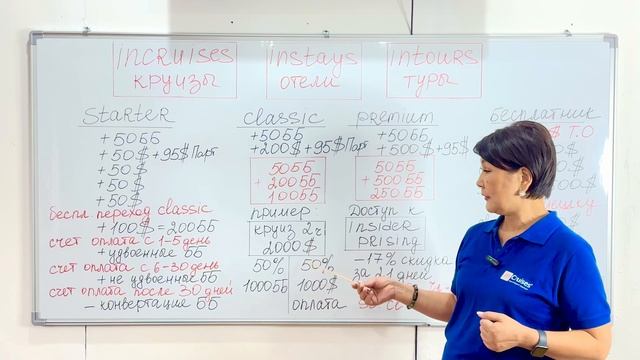 inCRUISES
КРУИЗЫ
inSTAYS
ОТЕЛИ
inTOURS
ТУРЫ
STARTER
+50ББ
+50$+95$Парт
+50$
+50$
+50$
беспл. переход classic
+100$=200ББ
счет оплата с 1-5 день
+удвоенные ББ
счет оплата с 6-30 день
+не удвоенные ББ
счет оплата после 30 дней
-конвертация ББ
CLASSIC
+50ББ
+200$+95$Парт
50ББ
+200ББ
100ББ
пример:
круиз 2ч
2000$
50%
50%
100ББ
1000$
оплата
PREMIUM
+50ББ
+500$+95
50ББ
+500ББ
250ББ
Доступ к
insider
prising
-17% скидка
за 21 дней
бесплатник
$ Т.О
Cruises